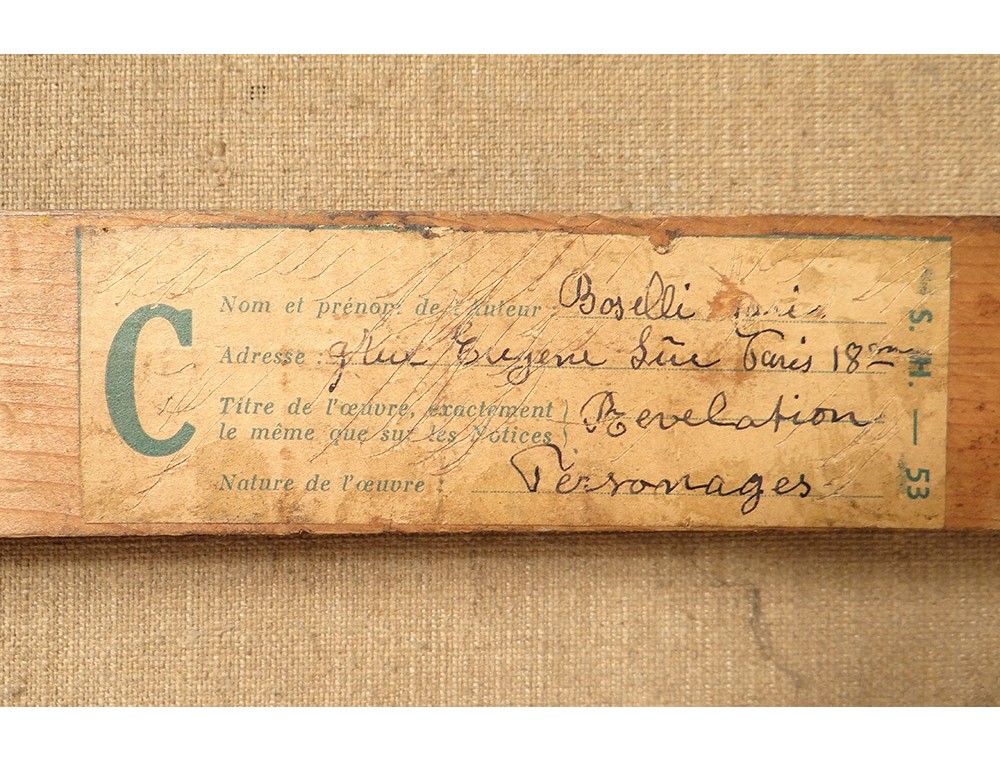 C
Nom et prénom de l'Auteur : Boselli
Adresse : Rue Eugene Sûe Paris 18em
Titre de l'œuvre, exactement
le même que sur les Notices } Revelation
Nature de l'œuvre : Personages
S. H. — 53